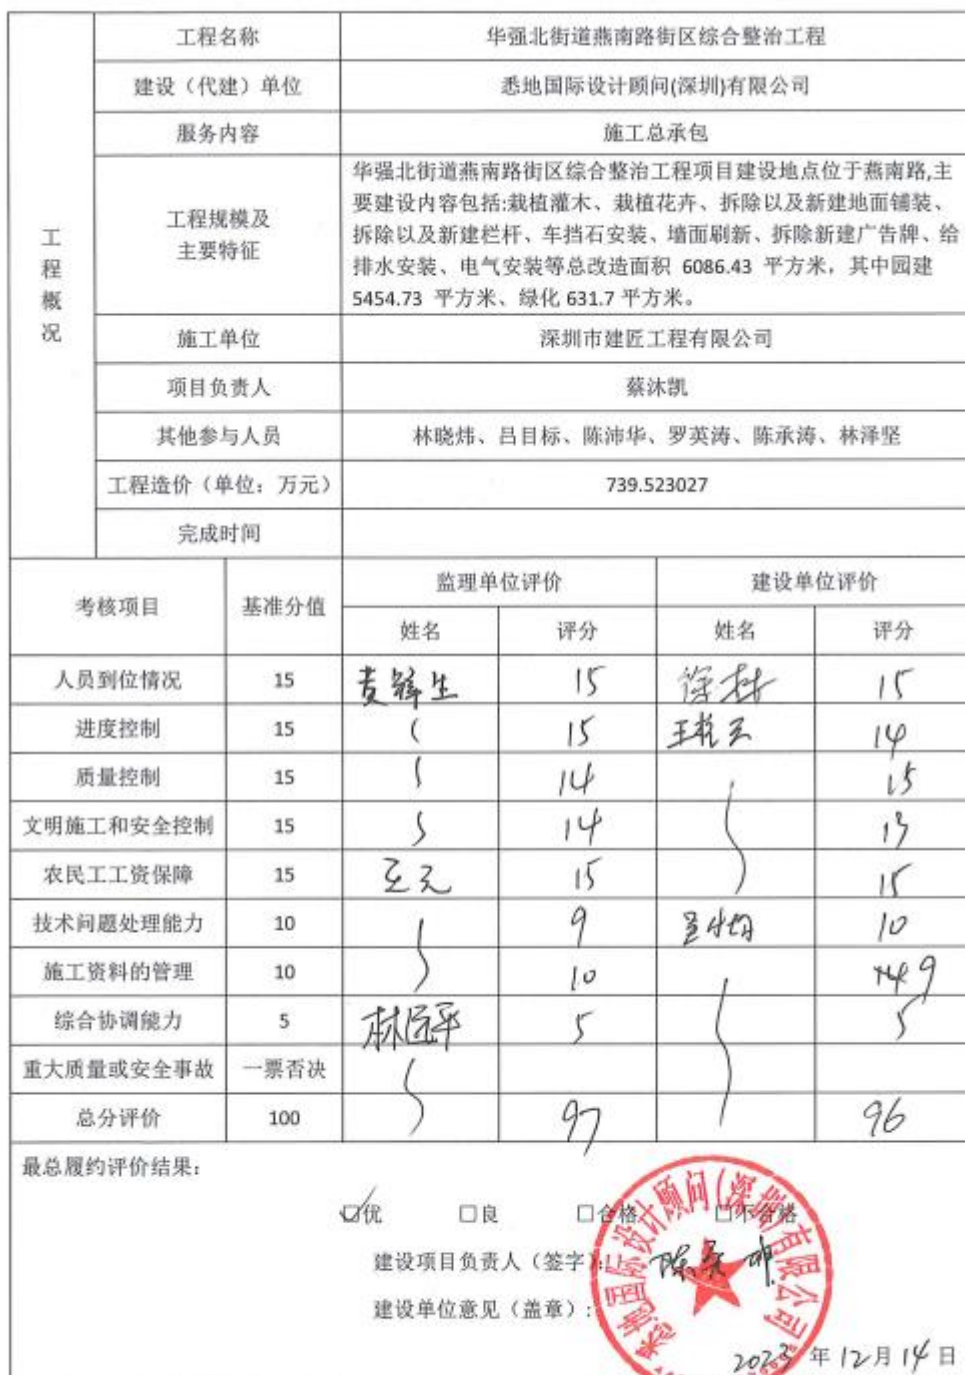 工程概况
工程名称 华强北街道燕南路街区综合整治工程
建设（代建）单位 悉地国际设计顾问(深圳)有限公司
服务内容 施工总承包
工程规模及
主要特征
华强北街道燕南路街区综合整治工程项目建设地点位于燕南路,主
要建设内容包括:栽植灌木、栽植花卉、拆除以及新建地面铺装、
拆除以及新建栏杆、车挡石安装、墙面刷新、拆除新建广告牌、给
排水安装、电气安装等总改造面积 6086.43 平方米，其中园建
5454.73 平方米、绿化 631.7 平方米。
施工单位 深圳市建匠工程有限公司
项目负责人 蔡沐凯
其他参与人员 林晓炜、吕目标、陈沛华、罗英涛、陈承涛、林泽坚
工程造价（单位：万元） 739.523027
完成时间
考核项目 基准分值 监理单位评价 建设单位评价
姓名 评分 姓名 评分
人员到位情况 15 15 15
进度控制 15 15 14
质量控制 15 14 15
文明施工和安全控制 15 14 13
农民工工资保障 15 15 15
技术问题处理能力 10 9 10
施工资料的管理 10 10 9
综合协调能力 5 5 5
重大质量或安全事故 一票否决
总分评价 100 97 96
最总履约评价结果：
☑优 □良 □合格 □不合格
建设项目负责人（签字）：
建设单位意见（盖章）：
悉地国际设计顾问(深圳)有限公司
2023 年 12 月 14 日